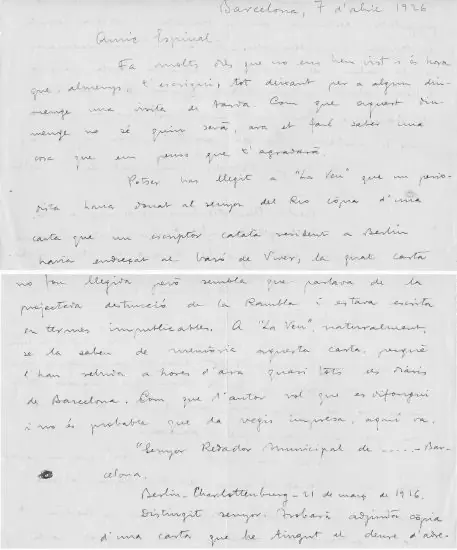 Barcelona, 7 d'abril 1926
Amic Espinal.
Fa molts dies que no ens hem vist i és hora
que, almenys, t'escrigui, tot deixant per a algun diu-
menge una visita de tarda. Com que aquest diu-
menge no sé quin serà, ara et faig saber una
cosa que em penso que t'agradarà.
Potser has llegit a "La Veu" que un perio-
dista havia donat al senyor del Rio còpia d'una
carta que un escriptor català resident a Berlin
havia endreçat al baró de Viver, la qual carta
no fou llegida però sembla que parlava de la
projectada destrucció de la Rambla i estava escrita
en termes impublicables. A "La Veu", naturalment,
se la saben de memòria aquesta carta, perquè
l'han rebuda a hores d'ara quasi tots els diaris
de Barcelona. Com que l'autor vol que es difongui
i no és probable que la vegis impresa, aquí va.
"Senyor Redactor Municipal de ..... - Bar-
celona.
Berlin-Charlottenburg - 21 de març de 1926.
Distingit senyor: Trobarà adjunta còpia
d'una carta que he tingut el deure d'adre-